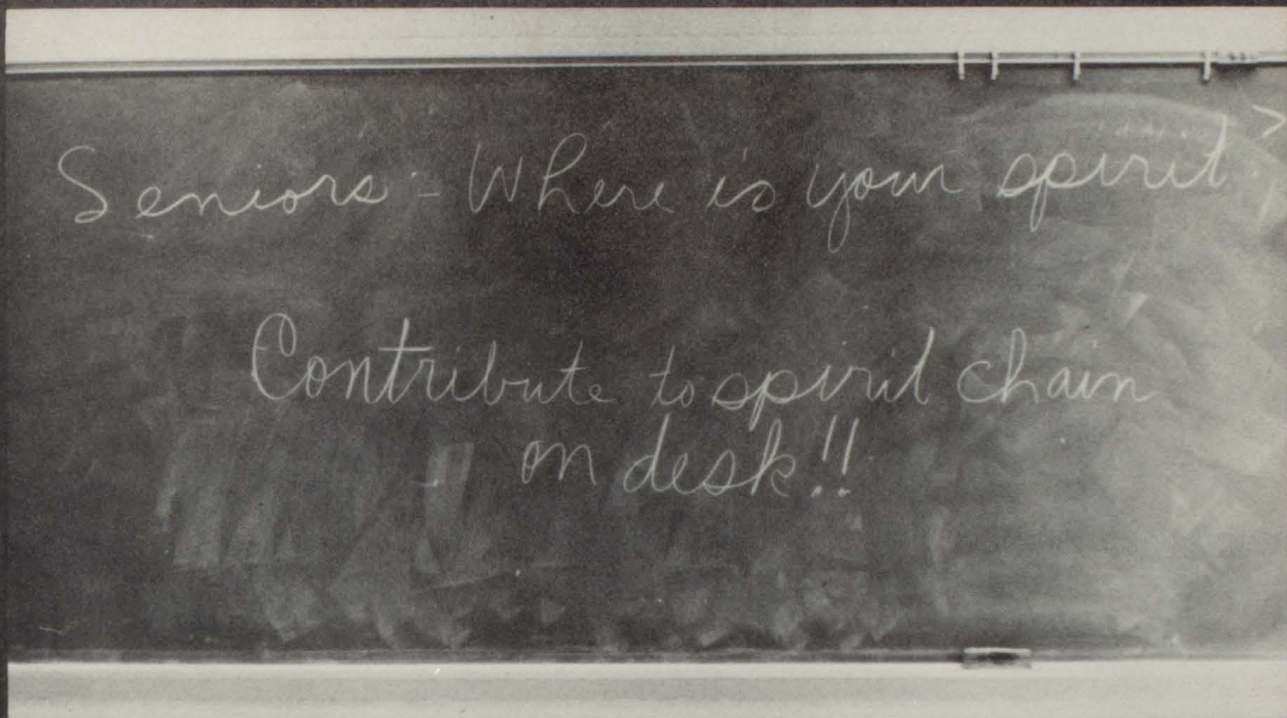 Seniors - Where is your spirit
Contribute to spirit chain
on desk!!